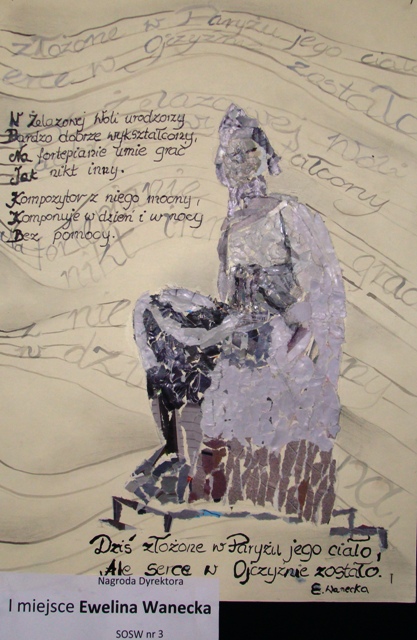 złożone w Paryżu jego ciało
serce w Ojczyźnie zostało
W Żelazowej Woli urodzony
Bardzo dobrze wykształcony,
Na fortepianie umie grać
Jak nikt inny.
Kompozytor z niego mocny,
Komponuje w dzień i w nocy
Bez pomocy.
Dziś złożone w Paryżu jego ciało,
Ale serce w Ojczyźnie zostało.
E. Wanecka
Nagroda Dyrektora
I miejsce Ewelina Wanecka
SOSW nr 3